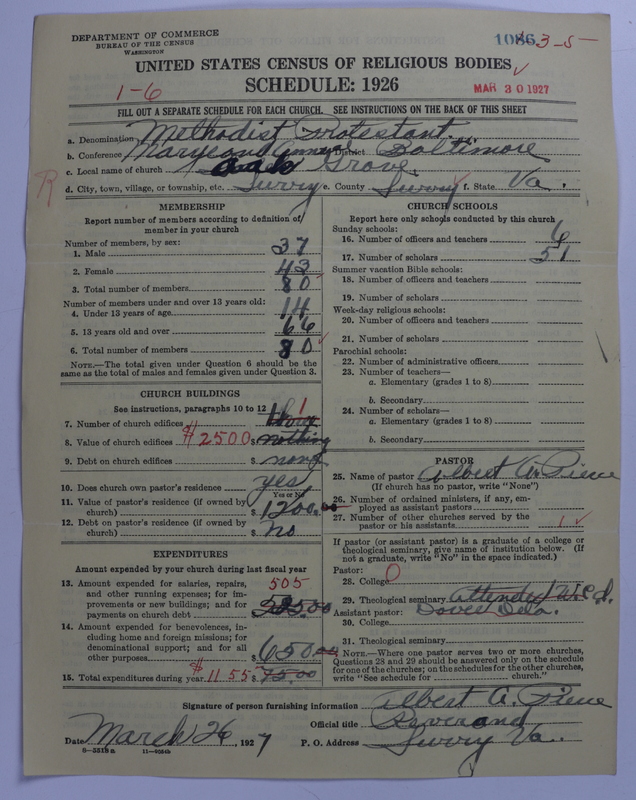 DEPARTMENT OF COMMERCE
BUREAU OF THE CENSUS
WASHINGTON
1086 3-5-
UNITED STATES CENSUS OF RELIGIOUS BODIES
SCHEDULE: 1926
1-6
MAR 30 1927
FILL OUT A SEPARATE SCHEDULE FOR EACH CHURCH. SEE INSTRUCTIONS ON THE BACK OF THIS SHEET
a. Denomination Methodist Protestant
b. Conference Maryland Annual District Baltimore
c. Local name of church Grove
R
d. City, town, village, or township, etc. Surry e. County Surry f. State Va.
MEMBERSHIP
Report number of members according to definition of
member in your church
Number of members, by sex:
1. Male 37
2. Female 43
3. Total number of members 80
Number of members under and over 13 years old:
4. Under 13 years of age 14
5. 13 years old and over 66
6. Total number of members 80
NOTE.—The total given under Question 6 should be
same as the total of males and females given under Question 3.
CHURCH BUILDINGS
See instructions, paragraphs 10 to 12
7. Number of church edifices 1
8. Value of church edifices $2500 $ nothing
9. Debt on church edifices $ none
10. Does church own pastor's residence yes
Yes or No
11. Value of pastor's residence (if owned by
church) $ 1200.00
12. Debt on pastor's residence (if owned by
church) $ no
EXPENDITURES
Amount expended by your church during last fiscal year
13. Amount expended for salaries, repairs, 505
and other running expenses; for im-
provements or new buildings; and for
payments on church debt $
14. Amount expended for benevolences, in-
cluding home and foreign missions; for
denominational support; and for all
other purposes $ 650.00
15. Total expenditures during year $1155 $ 75.00
CHURCH SCHOOLS
Report here only schools conducted by this church
Sunday schools:
16. Number of officers and teachers 6
17. Number of scholars 51
Summer vacation Bible schools:
18. Number of officers and teachers
19. Number of scholars
Week-day religious schools:
20. Number of officers and teachers
21. Number of scholars
Parochial schools:
22. Number of administrative officers
23. Number of teachers—
a. Elementary (grades 1 to 8)
b. Secondary
24. Number of scholars—
a. Elementary (grades 1 to 8)
b. Secondary
PASTOR
25. Name of pastor Albert A. Pierce
(If church has no pastor, write "None")
26. Number of ordained ministers, if any, em-
ployed as assistant pastors
27. Number of other churches served by the
pastor or his assistants 1
If pastor (or assistant pastor) is a graduate of a college or
theological seminary, give name of institution below. (If
not a graduate, write "No" in the space indicated.)
Pastor: 0
28. College
29. Theological seminary attended
Assistant pastor: Dover Dela.
30. College
31. Theological seminary
NOTE.—Where one pastor serves two or more churches,
Questions 28 and 29 should be answered only on the schedule
for one of the churches; on schedules for the other churches,
write "See schedule for church."
Signature of person furnishing information Albert A. Pierce
Official title Reverand
Date March 26, 1927 P. O. Address Surry Va.
8-3518a 11-9024b